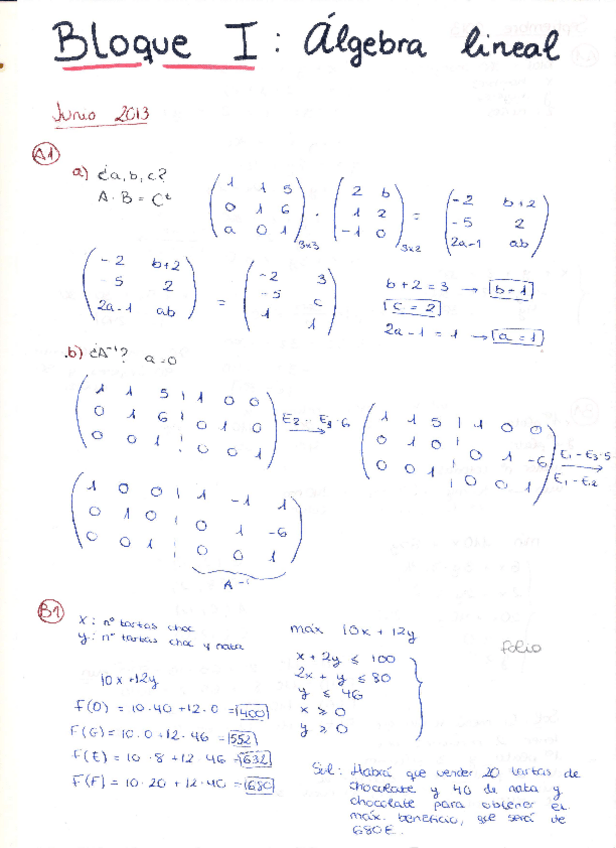 Bloque I : Álgebra lineal
Junio 2013
A1
a) ¿a, b, c?
A · B = Cᵗ
( 1 1 5
0 1 6
a 0 1 )3x3 · ( 2 b
1 2
-1 0 )3x2 = ( -2 b+2
-5 2
2a-1 ab )
( -2 b+2
-5 2
2a-1 ab ) = ( -2 3
-5 c
1 1 )
b+2=3 → b=1
c=2
2a-1=1 → a=1
b) ¿A⁻¹? a=0
( 1 1 5 | 1 0 0
0 1 6 | 0 1 0
0 0 1 | 0 0 1 ) E2 - E3·6 → ( 1 1 5 | 1 0 0
0 1 0 | 0 1 -6
0 0 1 | 0 0 1 ) E1-E3·5 → E1-E2
( 1 0 0 | 1 -1 1
0 1 0 | 0 1 -6
0 0 1 | 0 0 1 )
A⁻¹
B1
x: nº tartas choc
y: nº tartas choc y nata
10x+12y
F(D) = 10·40+12·0 = 400
F(G) = 10·0+12·46 = 552
F(E) = 10·8+12·46 = 632
F(F) = 10·20+12·40 = 680
máx 10x+12y
x+2y ≤ 100
2x+y ≤ 80
y ≤ 46
x ≥ 0
y ≥ 0
folio
Sol: Habrá que vender 20 tartas de
chocolate y 40 de nata y
chocolate para obtener el
máx. beneficio, que será de
680€.